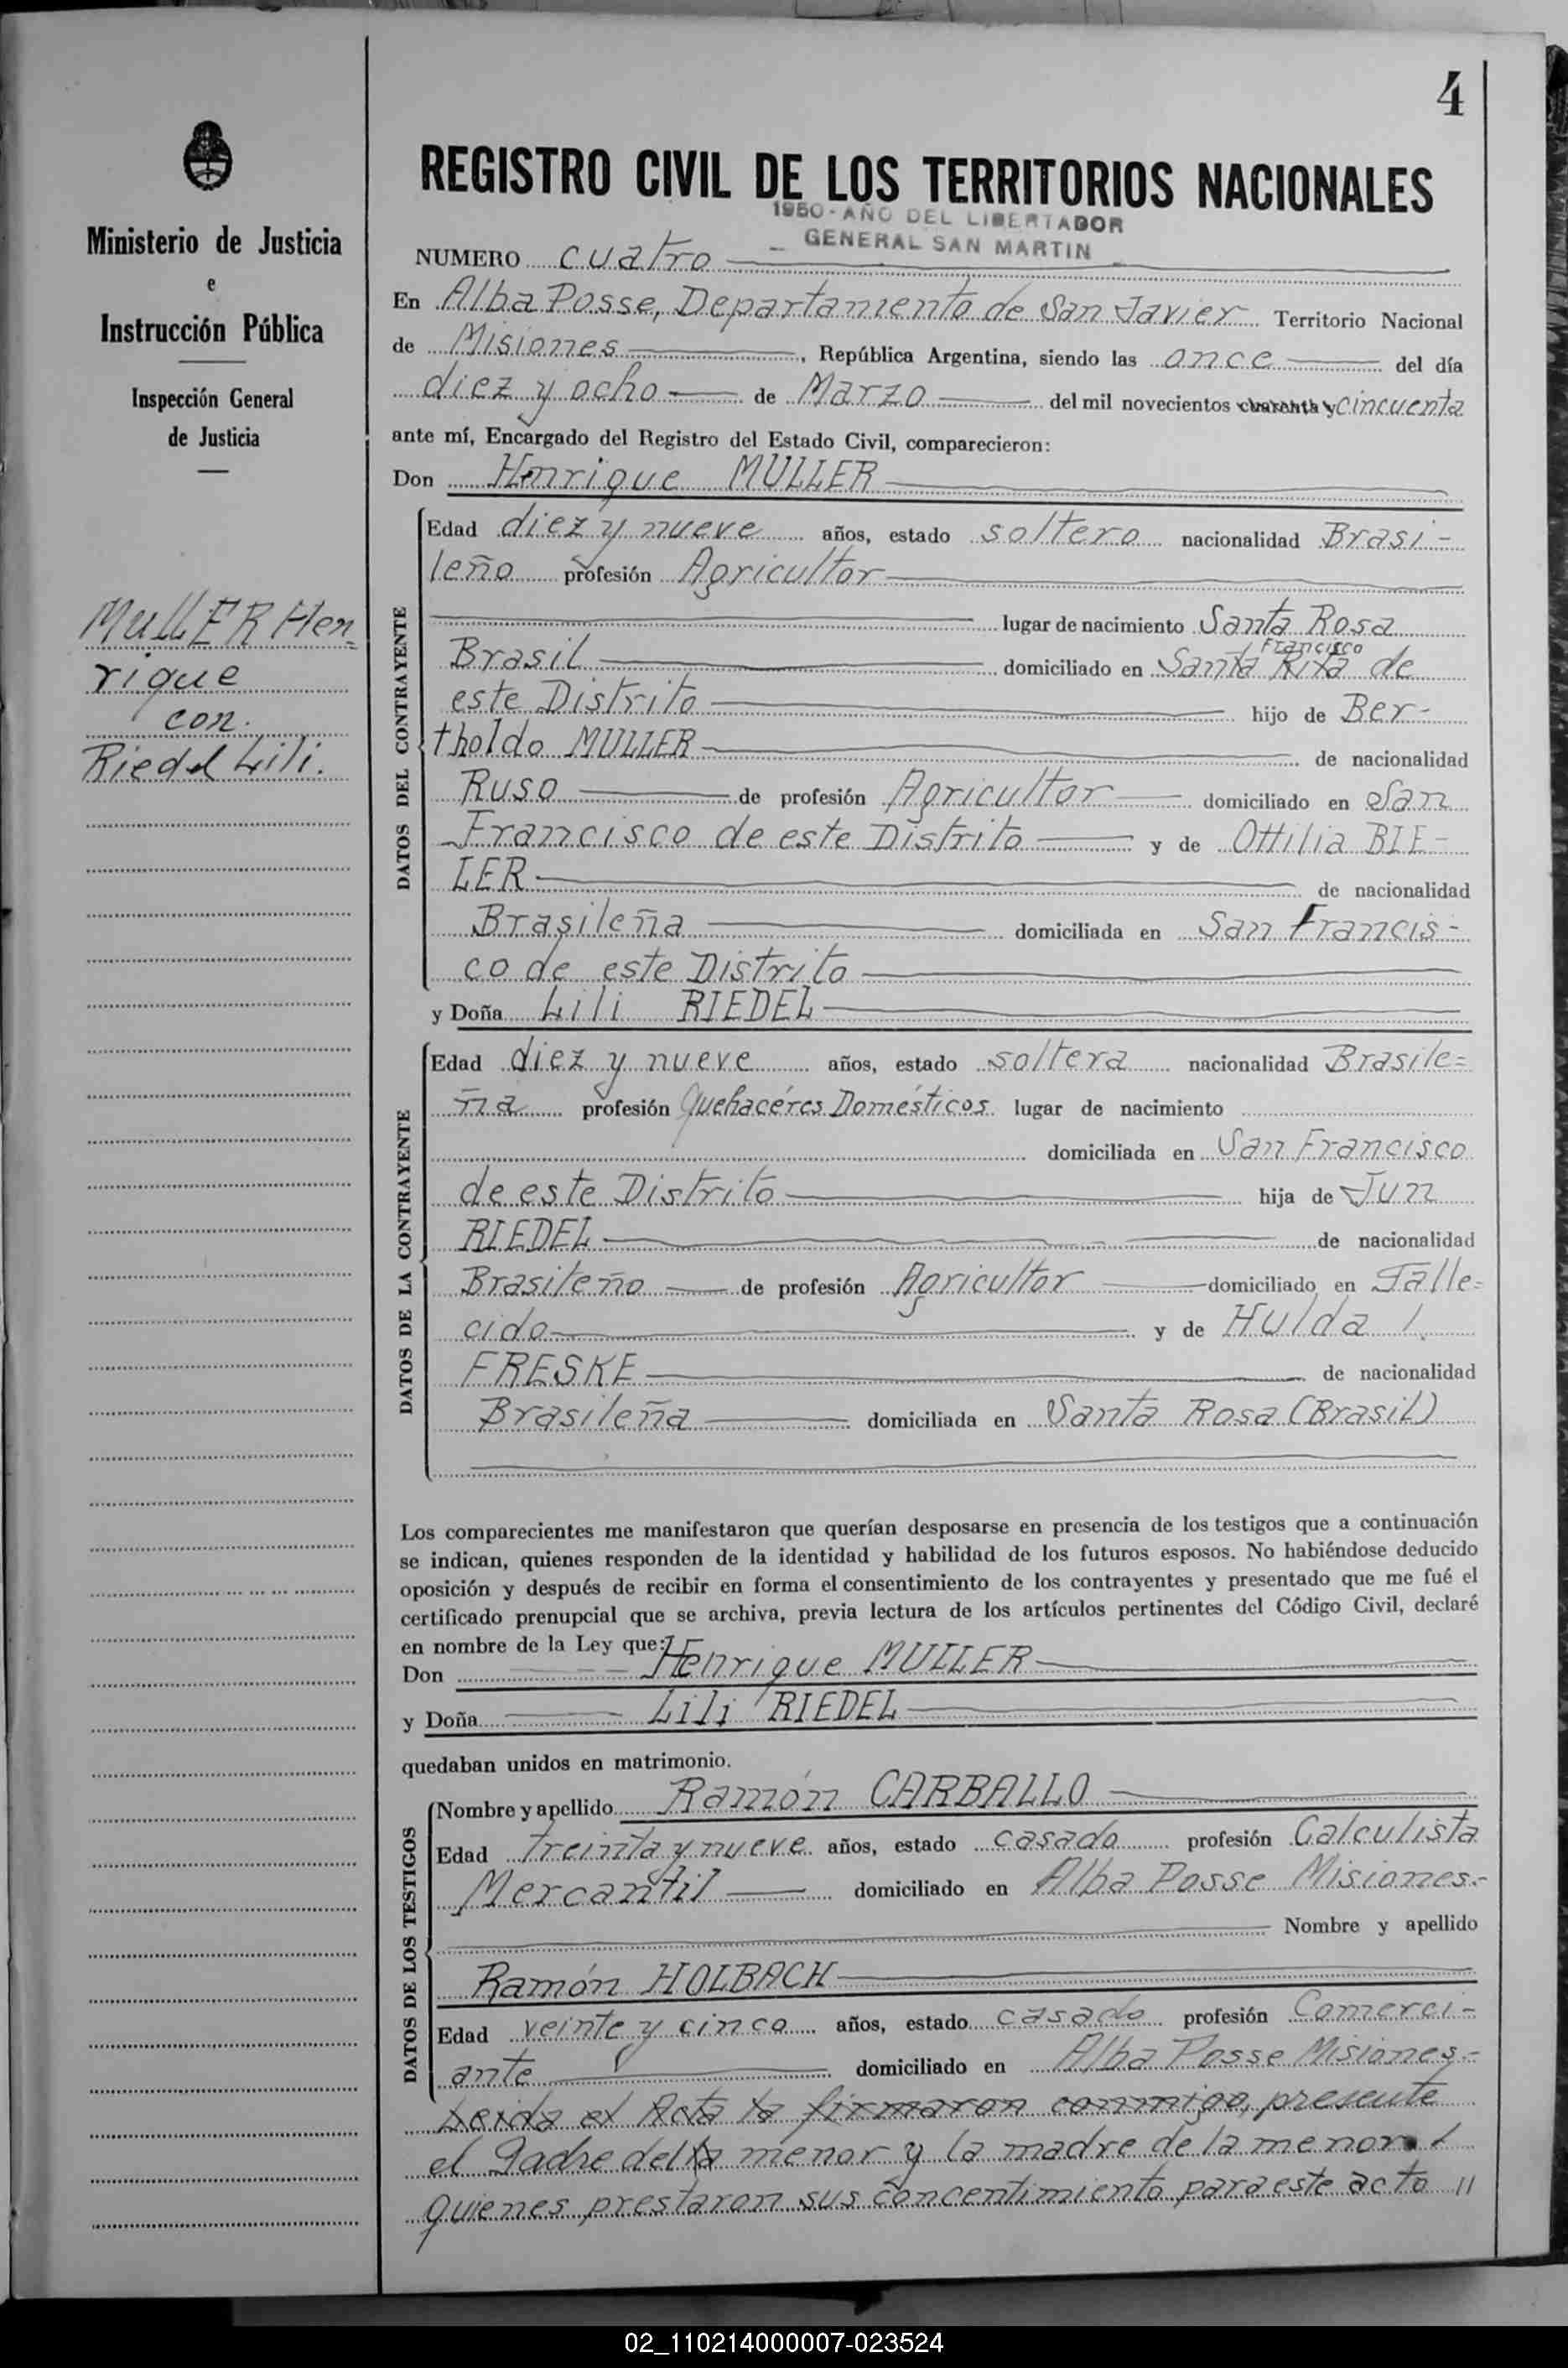 4
REGISTRO CIVIL DE LOS TERRITORIOS NACIONALES
1950 - AÑO DEL LIBERTADOR
GENERAL SAN MARTIN
Ministerio de Justicia
e
Instrucción Pública
Inspección General
de Justicia
MULLER Hen-
rique
con.
Riedel Lili.
NUMERO cuatro
En Alba Posse, Departamento de San Javier Territorio Nacional
de Misiones, República Argentina, siendo las once del día
diez y ocho de Marzo del mil novecientos cuarenta y cincuenta
ante mí, Encargado del Registro del Estado Civil, comparecieron:
Don Henrique MULLER
DATOS DEL CONTRAYENTE
Edad diez y nueve años, estado soltero nacionalidad Brasi-
leño profesión Agricultor
lugar de nacimiento Santa Rosa
Francisco
Brasil domiciliado en Santa Rita de
este Distrito hijo de Ber-
tholdo MULLER de nacionalidad
Ruso de profesión Agricultor domiciliado en San
Francisco de este Distrito y de Ottilia BIE-
LER de nacionalidad
Brasileña domiciliada en San Francis-
co de este Distrito
y Doña Lili RIEDEL
DATOS DE LA CONTRAYENTE
Edad diez y nueve años, estado soltera nacionalidad Brasile=
ña profesión Quehacéres Domésticos lugar de nacimiento
domiciliada en San Francisco
de este Distrito hija de Jun
RIEDEL de nacionalidad
Brasileño de profesión Agricultor domiciliado en Falle=
cido y de Hulda
FRESKE de nacionalidad
Brasileña domiciliada en Santa Rosa (Brasil)
Los comparecientes me manifestaron que querían desposarse en presencia de los testigos que a continuación
se indican, quienes responden de la identidad y habilidad de los futuros esposos. No habiéndose deducido
oposición y después de recibir en forma el consentimiento de los contrayentes y presentado que me fué el
certificado prenupcial que se archiva, previa lectura de los artículos pertinentes del Código Civil, declaré
en nombre de la Ley que:
Don Henrique MULLER
y Doña Lili RIEDEL
quedaban unidos en matrimonio.
DATOS DE LOS TESTIGOS
Nombre y apellido Ramón CARBALLO
Edad treinta y nueve años, estado casado profesión Calculista
Mercantil domiciliado en Alba Posse Misiones.-
Nombre y apellido
Ramón HOLBACH
Edad veinte y cinco años, estado casado profesión Comerci-
ante domiciliado en Alba Posse Misiones.-
Leida el Acta la firmaron conmigo, presente
el Padre del menor y la madre de la menor
quienes prestaron sus concentimiento para este acto //
02_110214000007-023524